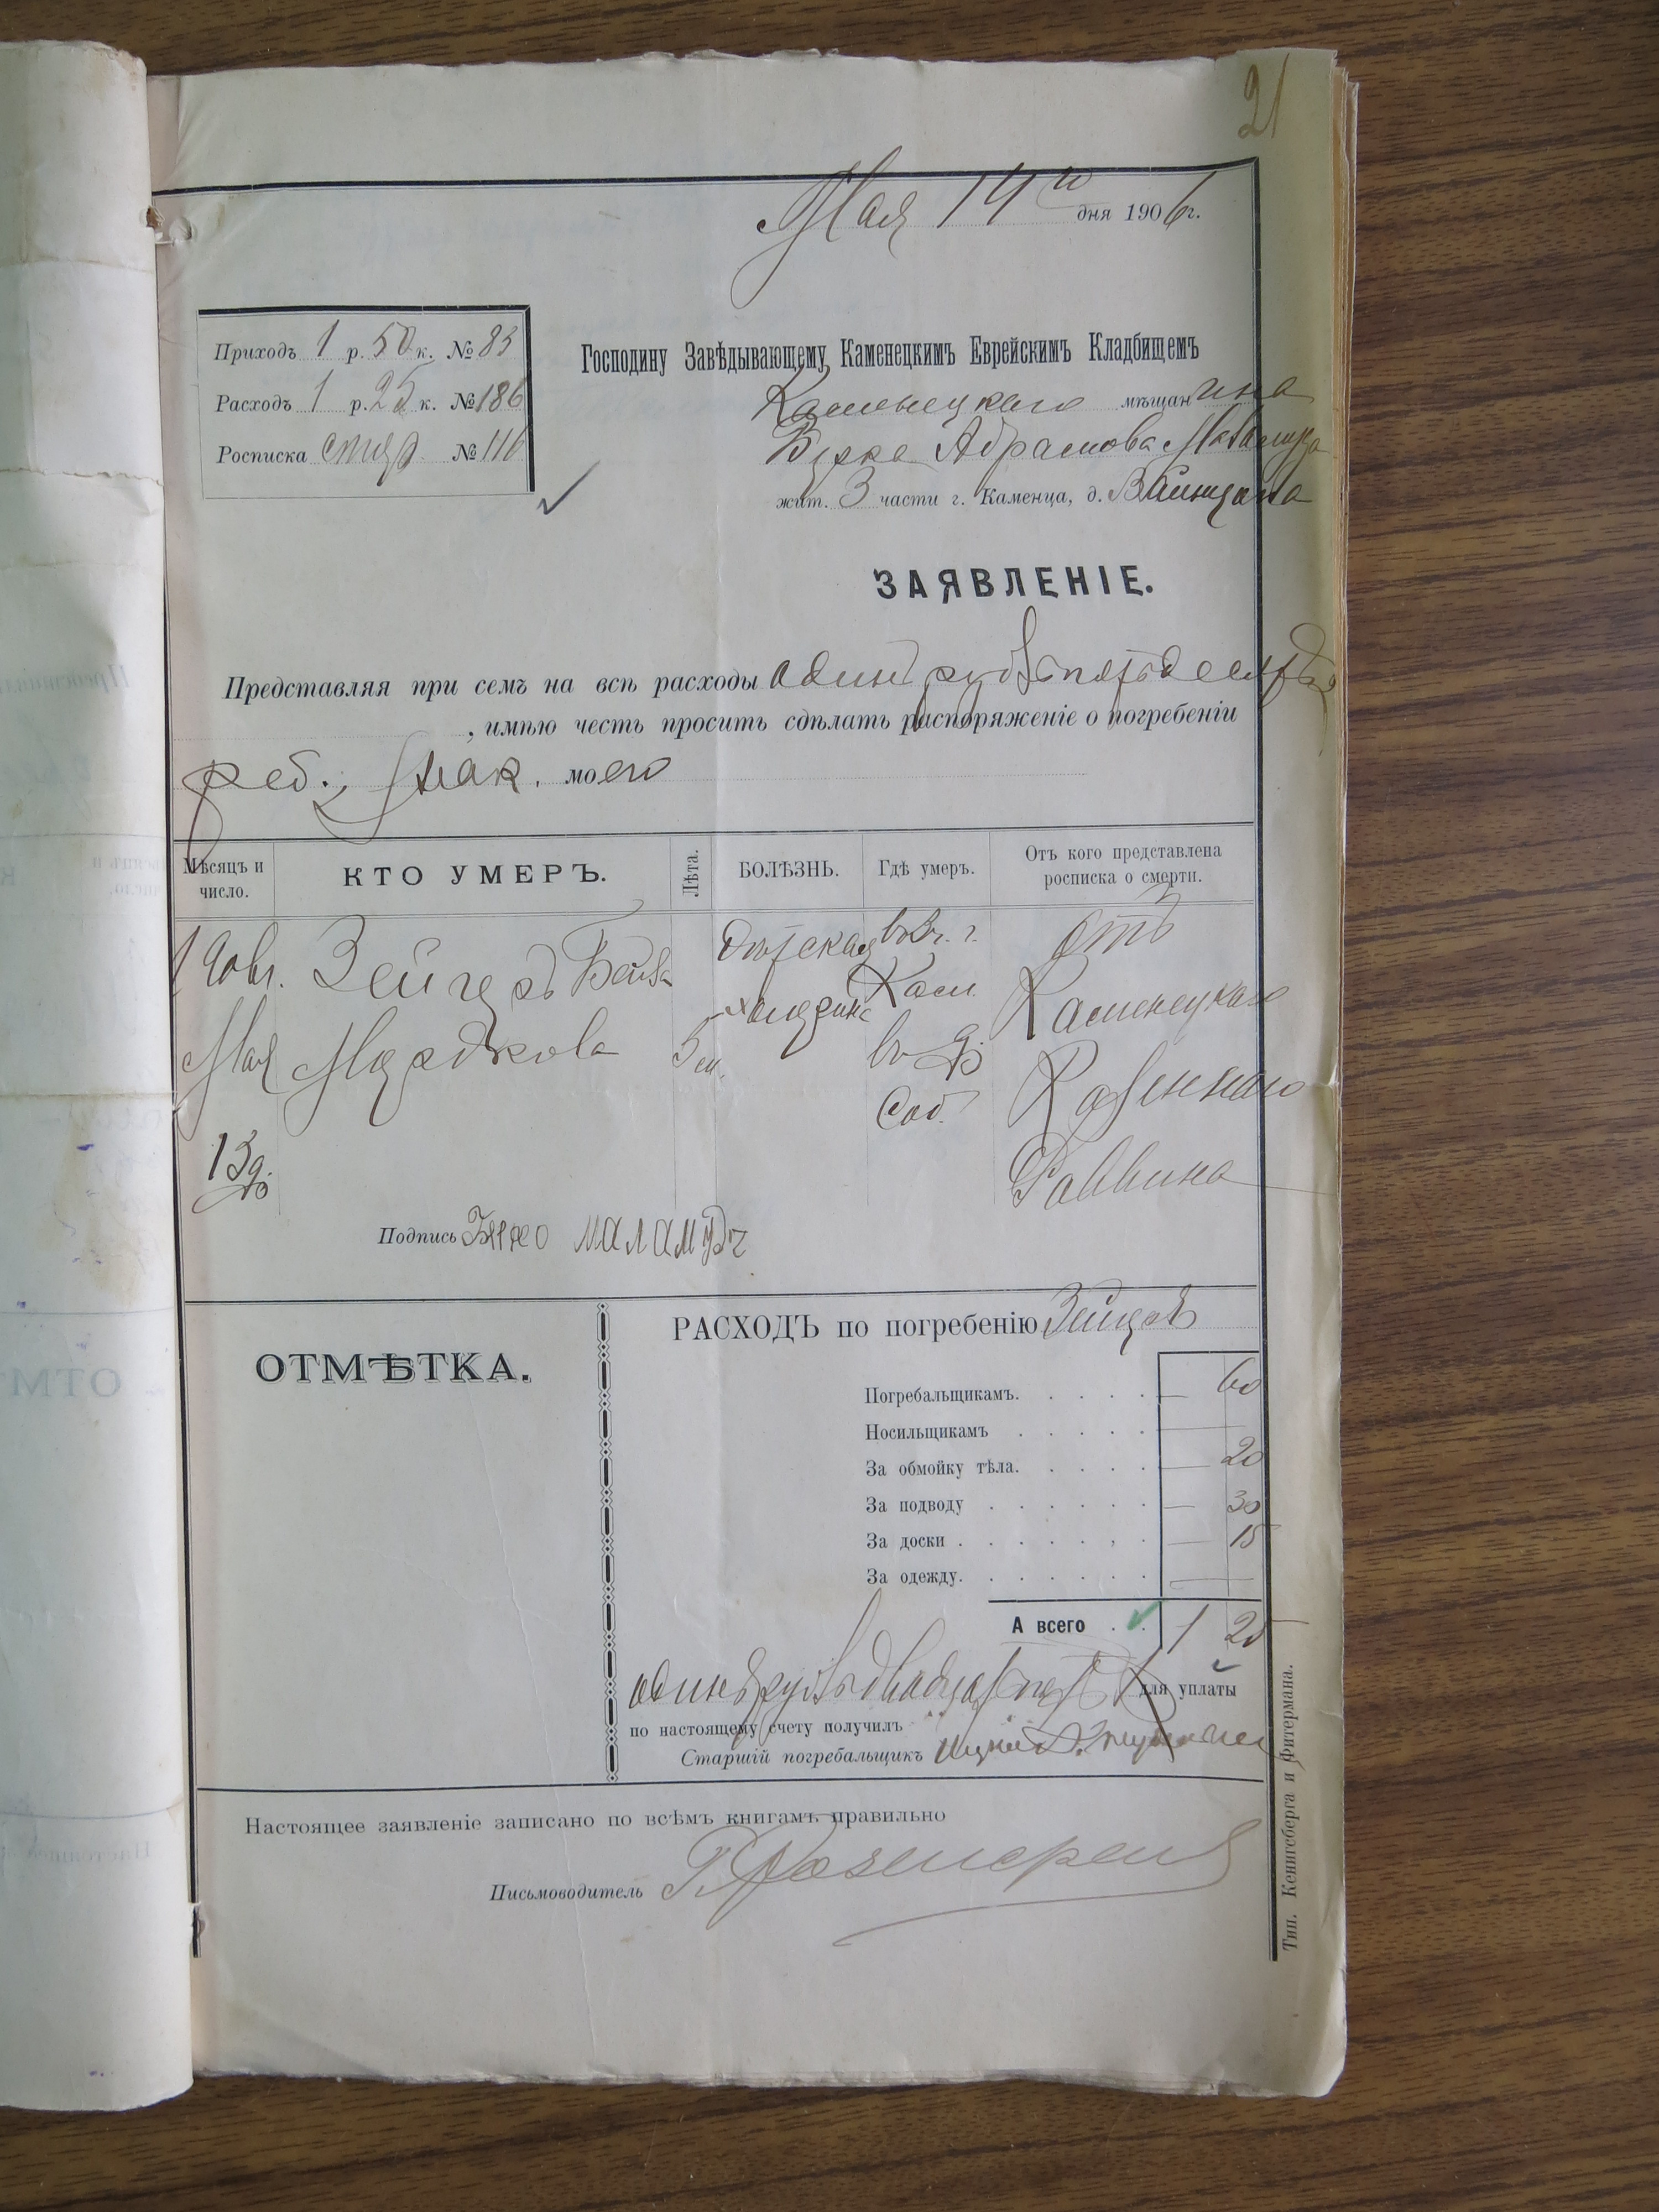 21
Мая 14го дня 1906 г.
Приходъ 1 р. 50 к. № 83
Расходъ 1 р. 25 к. № 186
Росписка № 116
Господину Завѣдывающему Каменецкимъ Еврейскимъ Кладбищемъ
Каменецкаго мѣщанина
Абрамова Маламуда
жит. 3 части г. Каменца, д.
ЗАЯВЛЕНІЕ.
Представляя при семъ на всѣ расходы одинъ рубль пятьдесятъ
, имѣю честь просить сдѣлать распоряженіе о погребеніи
реб. моего
Мѣсяцъ и число. КТО УМЕРЪ. Лѣта. БОЛѢЗНЬ. Гдѣ умеръ. Отъ кого представлена росписка о смерти.
Зейгеръ дѣтская отъ
Мая Мордкова 5 м. холерина Кам. Каменецкаго
13 Казеннаго
Раввина
Подпись маламудъ
ОТМѢТКА.
РАСХОДЪ по погребенію
Погребальщикамъ. — 60
Носильщикамъ —
За обмойку тѣла. — 20
За подводу — 30
За доски — 15
За одежду. —
А всего 1 25
одинъ рубль двадцать пять для уплаты
по настоящему счету получилъ
Старшій погребальщикъ
Настоящее заявленіе записано по всѣмъ книгамъ правильно
Письмоводитель
Тип. Кенигсберга и Фитермана.